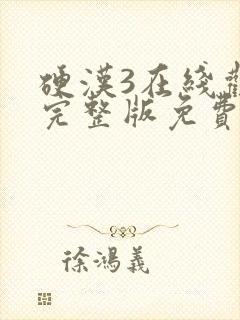 硬漢3在綫觀
完整版免費
徐鴻義